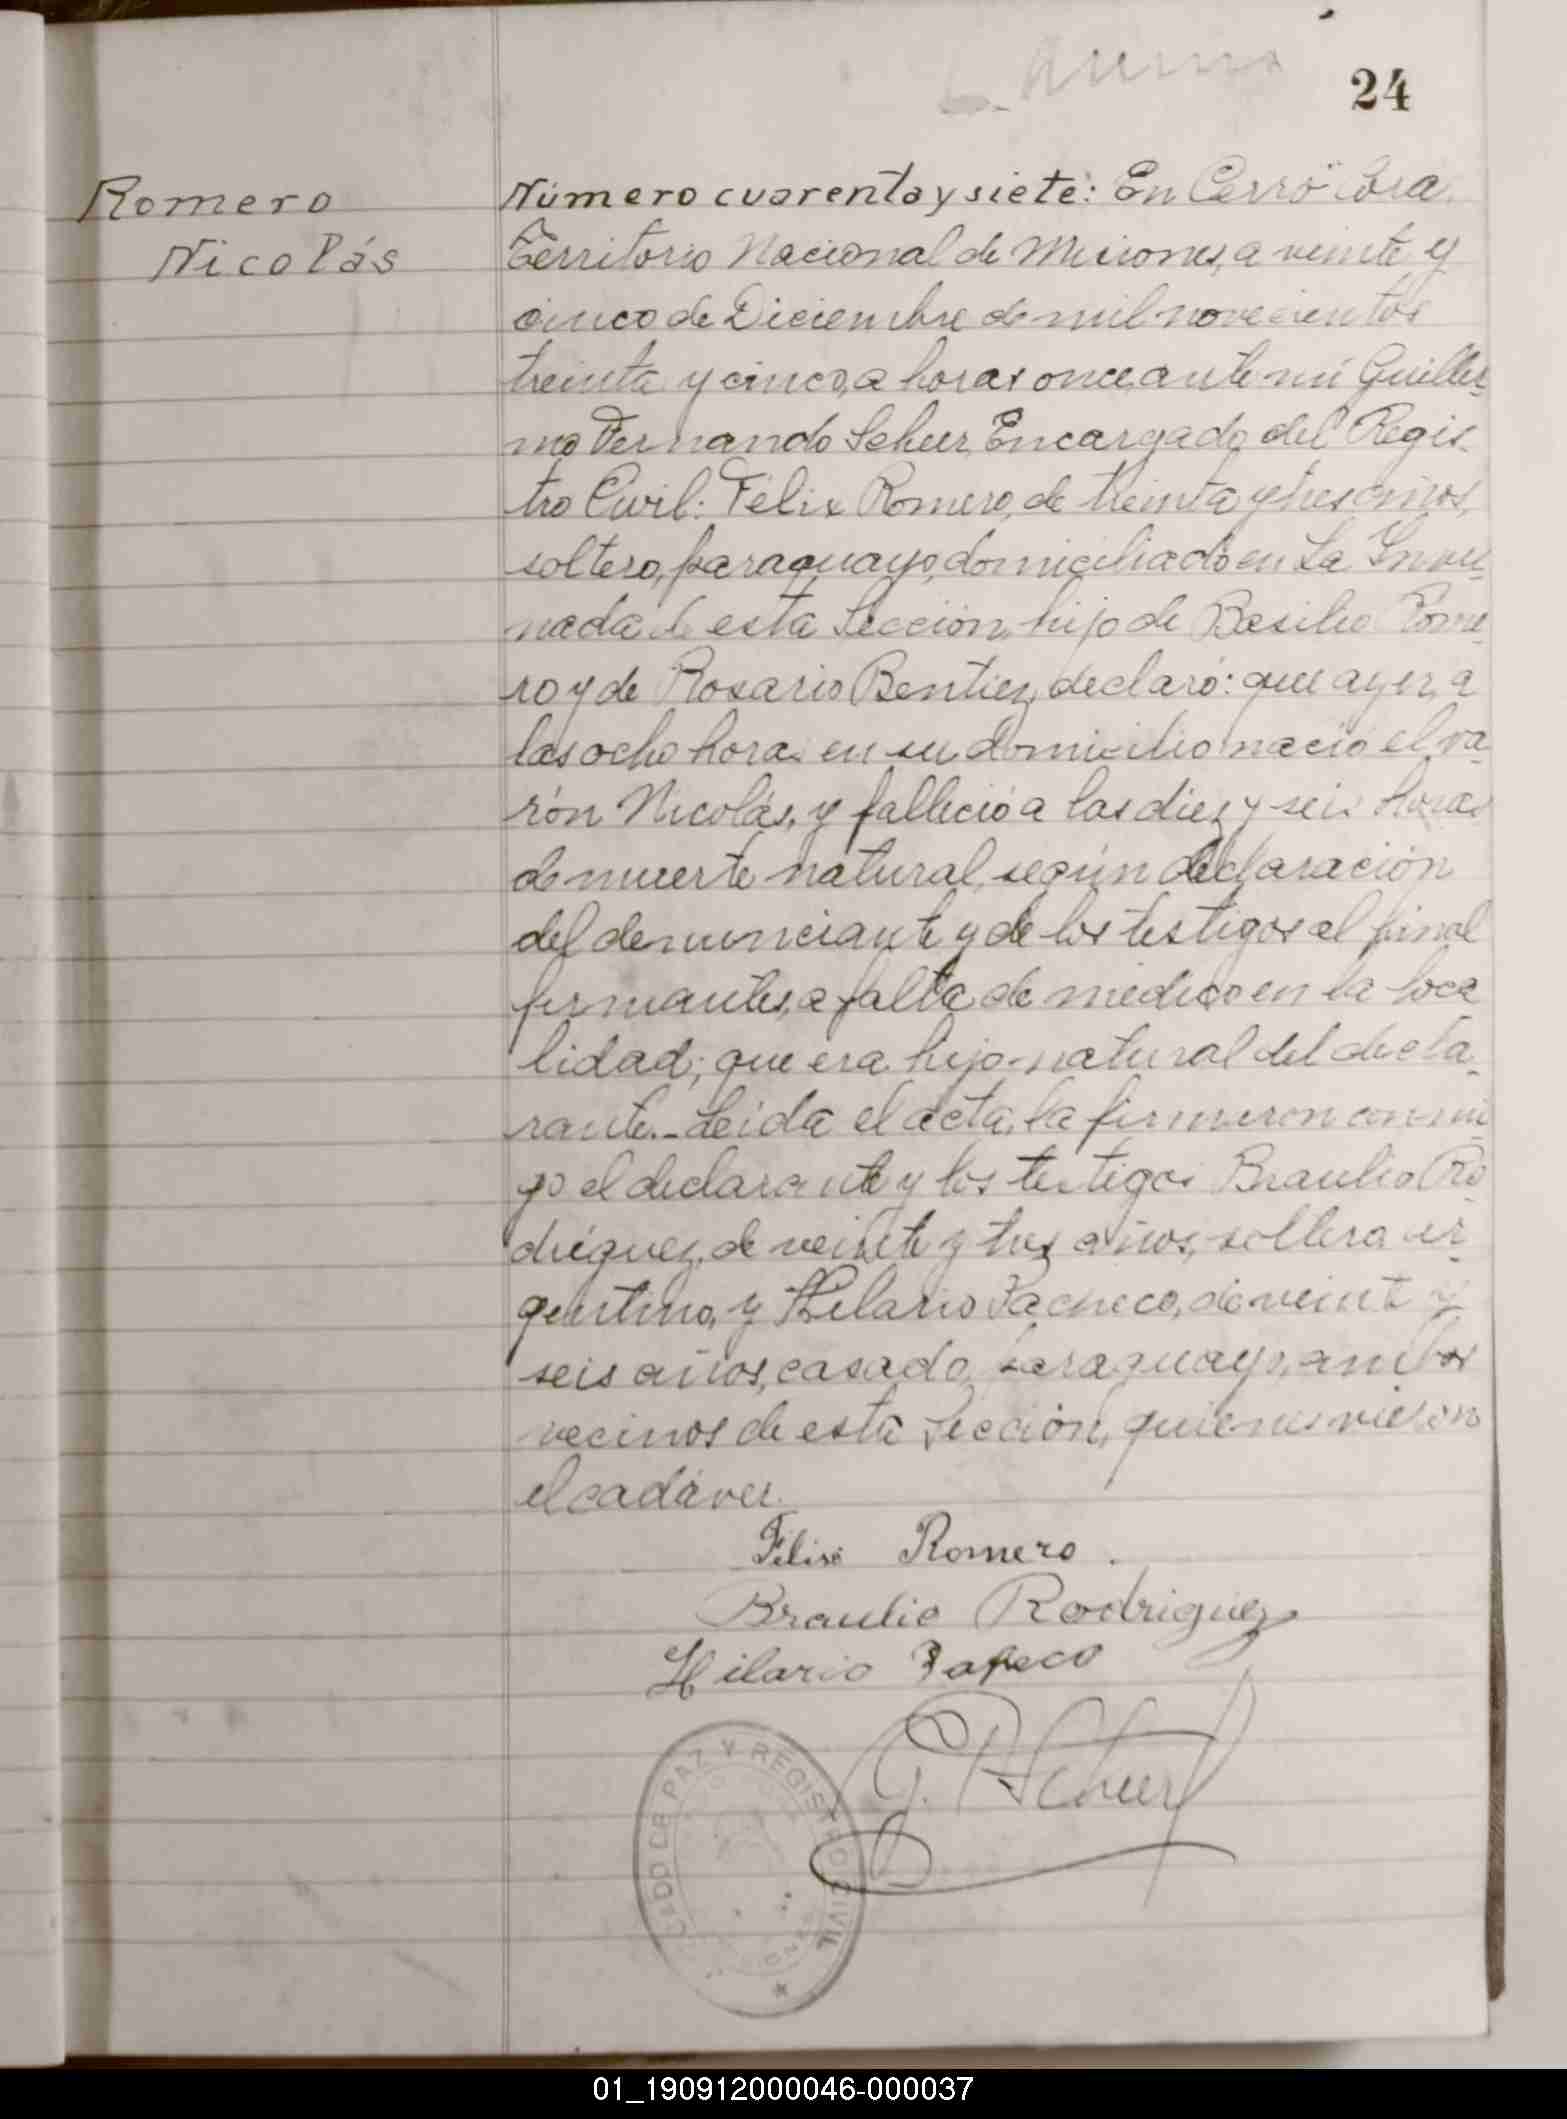 24
Romero
Nicolás
Número cuarenta y siete: En Cerro Cora
Territorio Nacional de Misiones, a veinte y
cinco de Diciembre de mil novecientos
treinta y cinco, a horas once, ante mí Guiller-
mo Fernando Scheer, Encargado del Regis-
tro Civil: Félix Romero, de treinta y tres años,
soltero, paraguayo, domiciliado en La Inver-
nada de esta Sección, hijo de Basilio Rome-
ro y de Rosario Benitez, declaró: que ayer, a
las ocho horas en su domicilio nació el va-
rón Nicolás, y falleció a las diez y seis horas
de muerte natural, según declaración
del denunciante y de los testigos al final
firmantes, a falta de médico en la loca
lidad; que era hijo natural del decla-
rante.- Leida el acta, la firmaron conmi
go el declarante y los testigos Braulio Ro
driguez, de veinte y tres años, soltero ar-
gentino, y Hilario Pacheco, de veinte y
seis años, casado, paraguayo, ambos
vecinos de esta Sección, quienes vieron
el cadáver.
Felix Romero.
Braulio Rodriguez
Hilario
G. F. Scheer
DE PAZ Y REGISTRO CIVIL
01_190912000046-000037